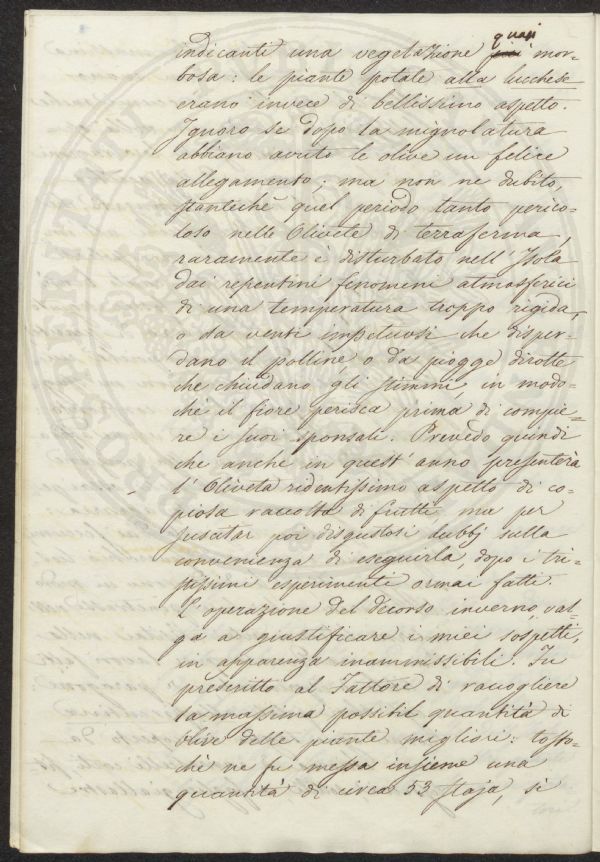 indicanti una vegetazione quasi mor-
bosa: le piante potate alla lucchese
erano invece di bellissimo aspetto.
Ignoro se dopo la mignolatura
abbiano avuto le olive un felice
allegamento; ma non ne dubito,
stanteché quel periodo tanto perico-
loso nelle Olivete di terraferma,
raramente è disturbato nell'Isola
dai repentini fenomeni atmosferici
di una temperatura troppo rigida,
o da venti impetuosi che disper-
dano il polline, o da piogge dirotte
che chiudano gli stimmi, in modo-
ché il fiore perisca prima di compie-
re i suoi sponsali. Prevedo quindi
che anche in quest'anno presenterà
l'Oliveta ridentissimo aspetto di co-
piosa raccolta di frutti ma per
suscitar poi disgustosi dubbj sulla
convenienza di eseguirla, dopo i tri-
stissimi esperimenti ormai fatti.
L'operazione del decorso inverno, val-
ga a giustificare i miei sospetti,
in apparenza inammissibili. Fu
prescritto al Fattore di raccogliere
la massima possibil quantità di
Olive delle piante migliori: tosto-
ché ne fu messa insieme una
quantità di circa 53 staja, si